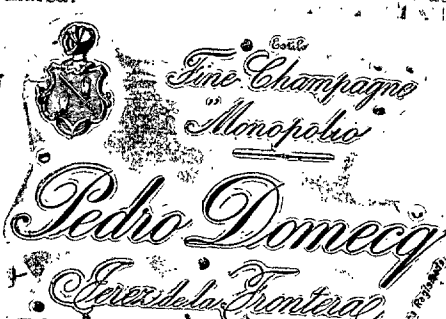 Estilo
Fine Champagne
Monopolio
Pedro Domecq
Jerez de la Frontera